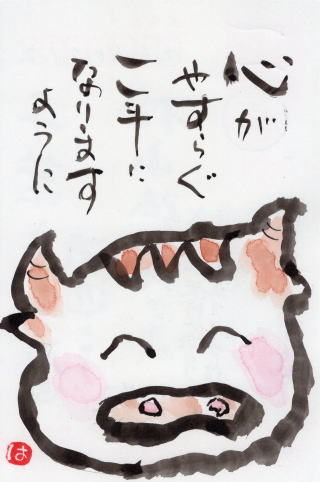 心が
やすらぐ
一年に
なります
ように
は